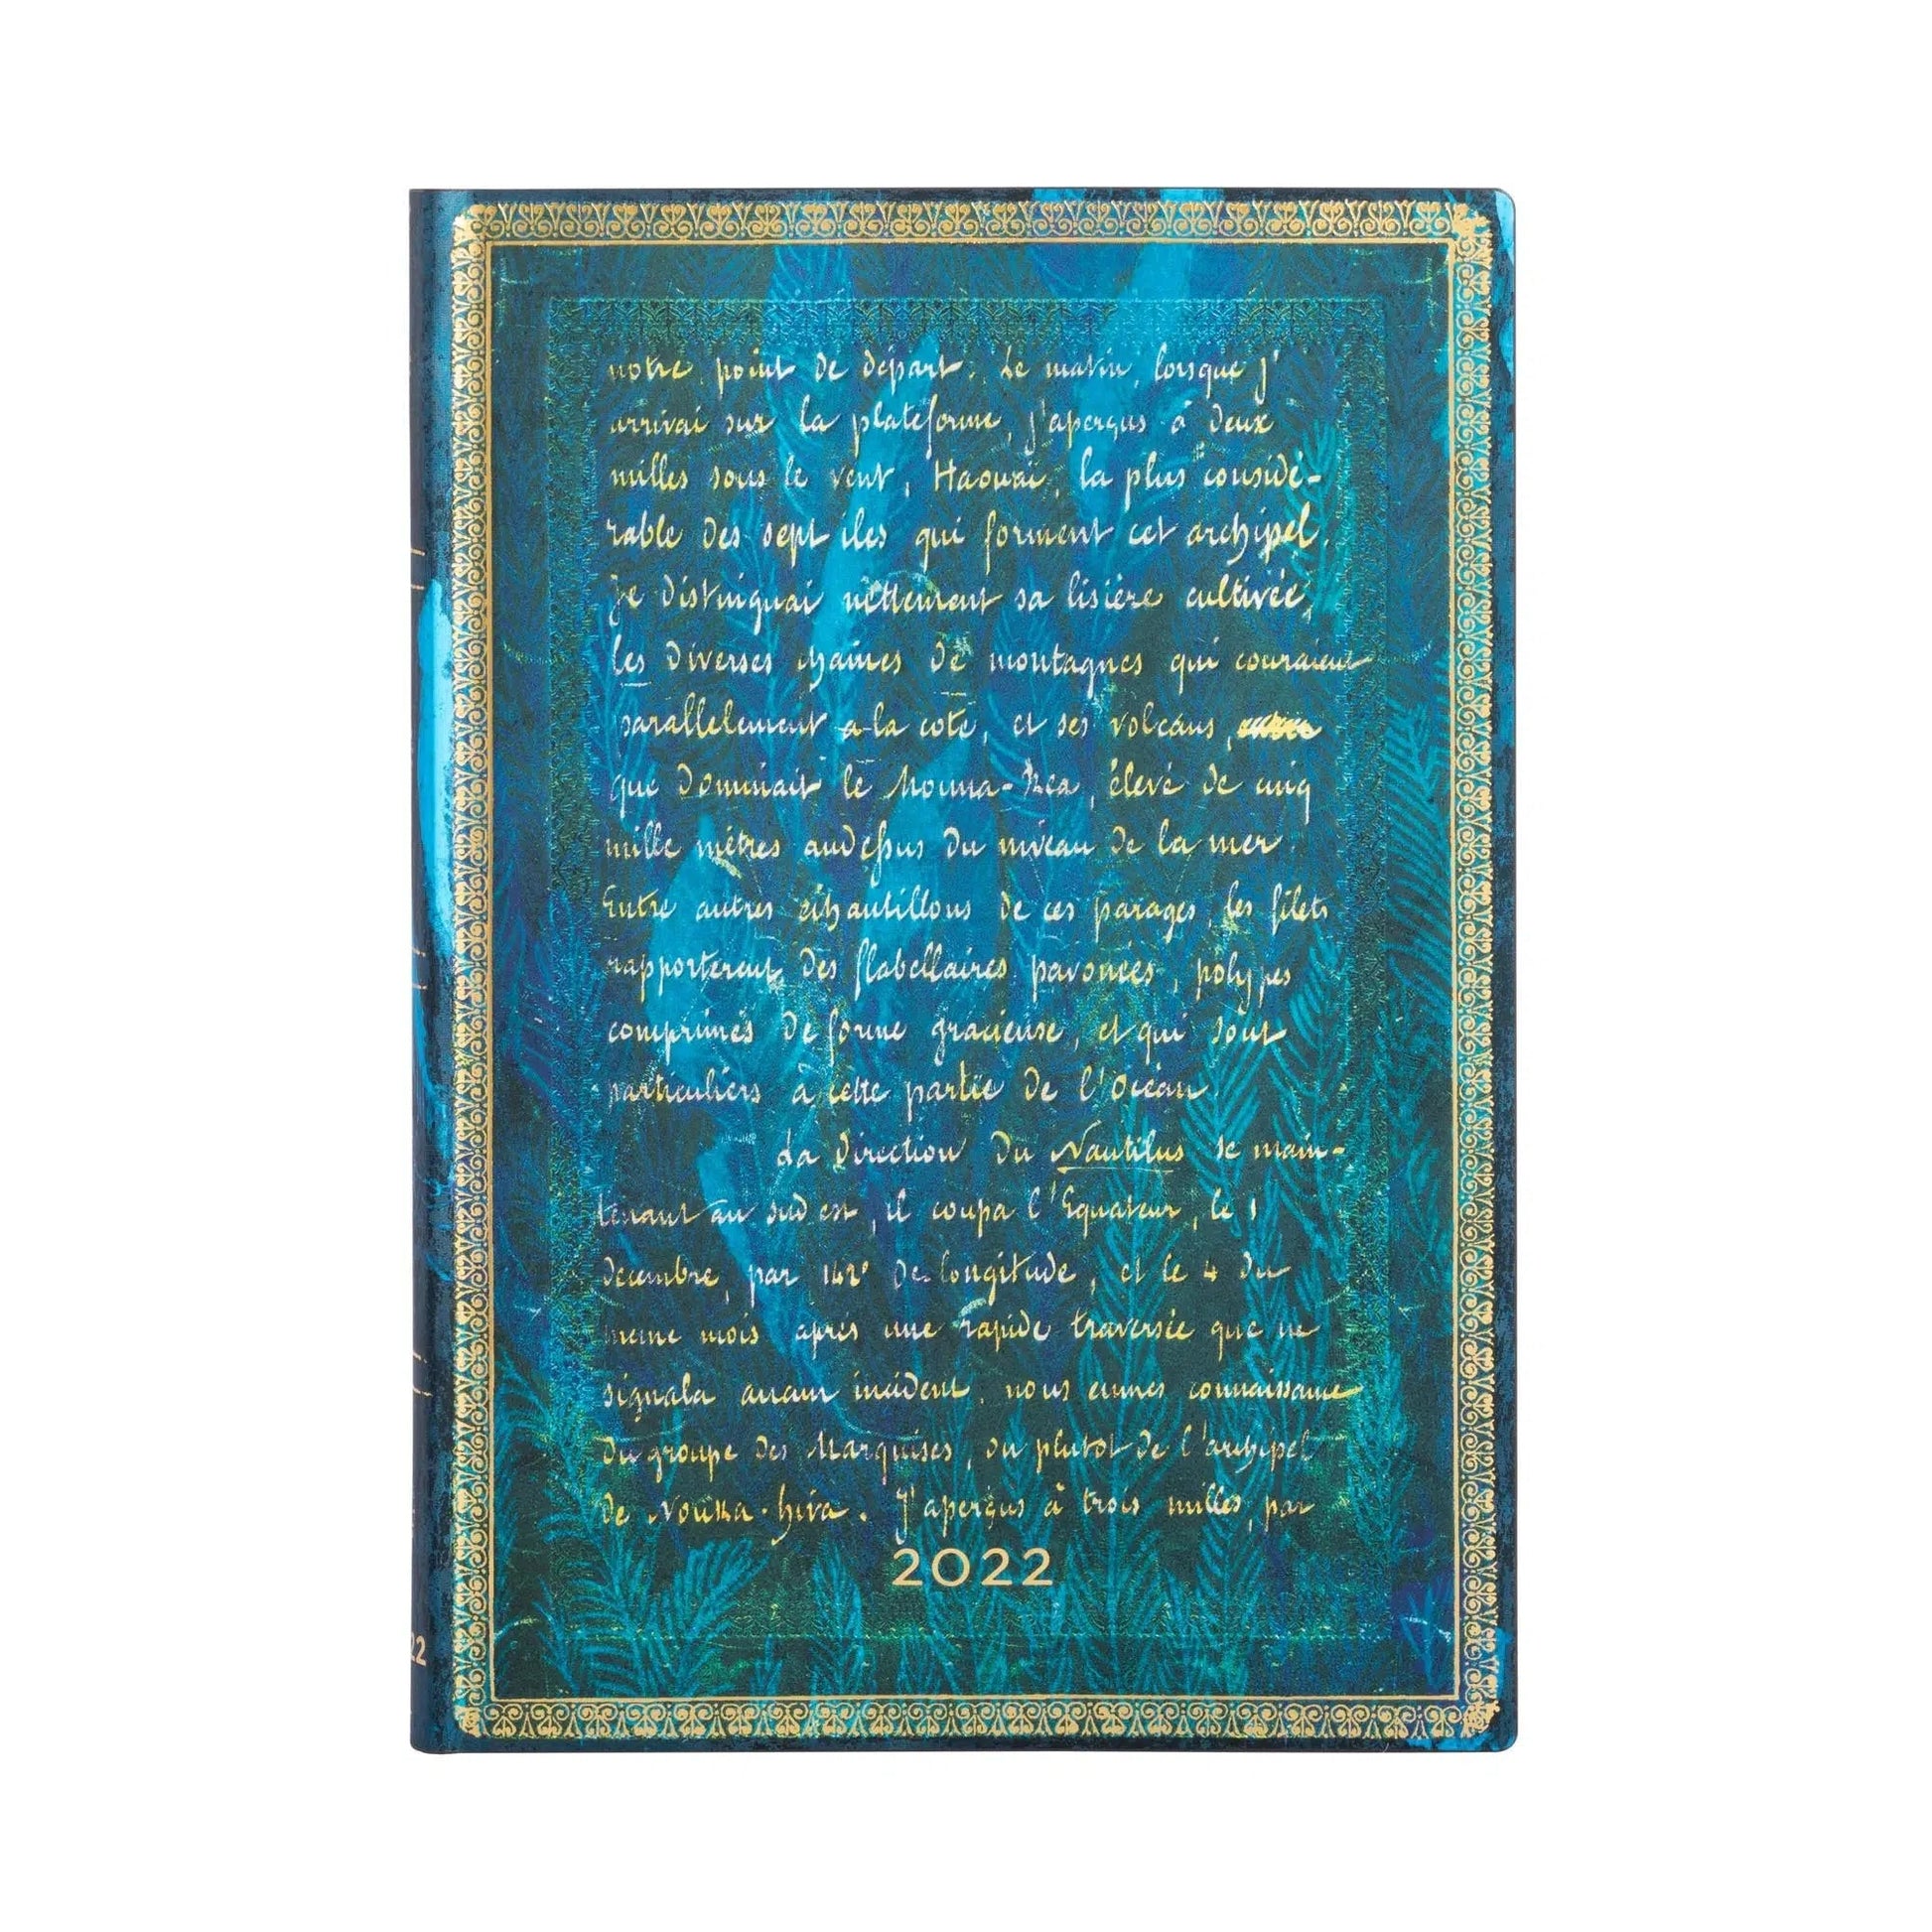 notre point de départ. Le matin, lorsque j'
arrivai sur la plateforme, j'aperçus à deux
milles sous le vent, Haouai, la plus considé-
rable des sept iles qui forment cet archipel.
Je distinguai nettement sa lisière cultivée,
les diverses chaines de montagnes qui couraient
parallelement a la cote, et ses volcans,
que dominait le Mouna-Rea, élevé de cinq
mille mètres audessus du niveau de la mer.
Entre autres échantillons de ces parages, les filets
rapporterent des flabellaires pavonées, polypes
comprimés de forme gracieuse, et qui sont
particuliers à cette partie de l'Océan.
La direction du Nautilus se main-
tenant au sud est, il coupa l'Equateur, le 1
decembre, par 142° de longitude, et le 4 du
meme mois après une rapide traversée que ne
signala aucun incident, nous eumes connaissance
du groupe des Marquises, ou plutot de l'archipel
de Nouka-hiva. J'aperçus à trois milles, par
2022
22